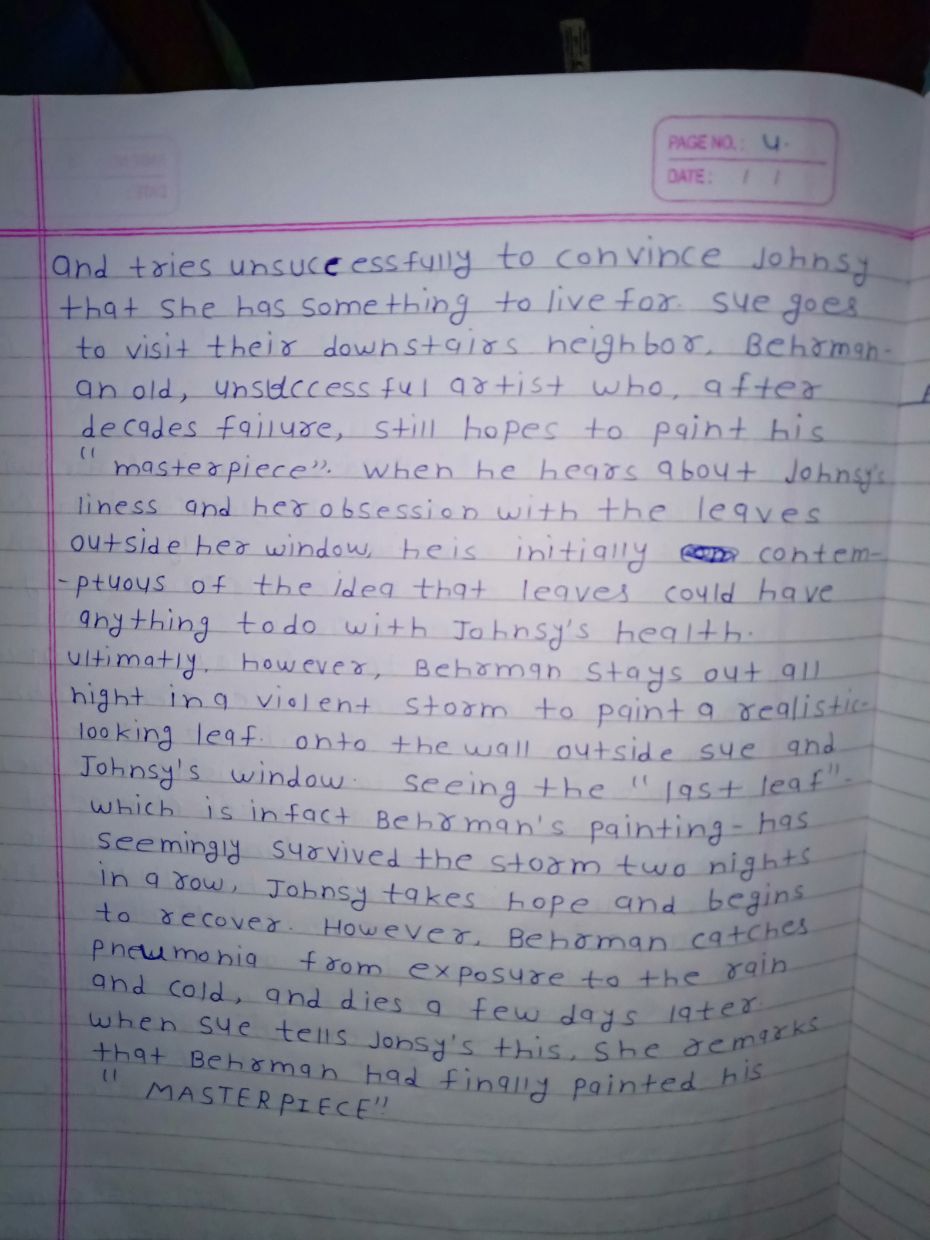 PAGE NO.: 4.
DATE: / /
and tries unsuccessfully to convince Johnsy
that she has something to live for. Sue goes
to visit their downstairs neighbor, Behrman-
an old, unsuccessful artist who, after
decades failure, still hopes to paint his
"masterpiece". When he hears about Johnsy's
liness and her obsession with the leaves
outside her window, he is initially contem-
-ptuous of the idea that leaves could have
anything to do with Johnsy's health.
Ultimatly, however, Behrman stays out all
night in a violent storm to paint a realistic-
looking leaf. onto the wall outside sue and
Johnsy's window. Seeing the "last leaf"-
which is in fact Behrman's painting - has
seemingly survived the storm two nights
in a row, Johnsy takes hope and begins
to recover. However, Behrman catches
pneumonia from exposure to the rain
and cold, and dies a few days later.
when sue tells Jonsy's this, she remarks
that Behrman had finally painted his
"MASTERPIECE"